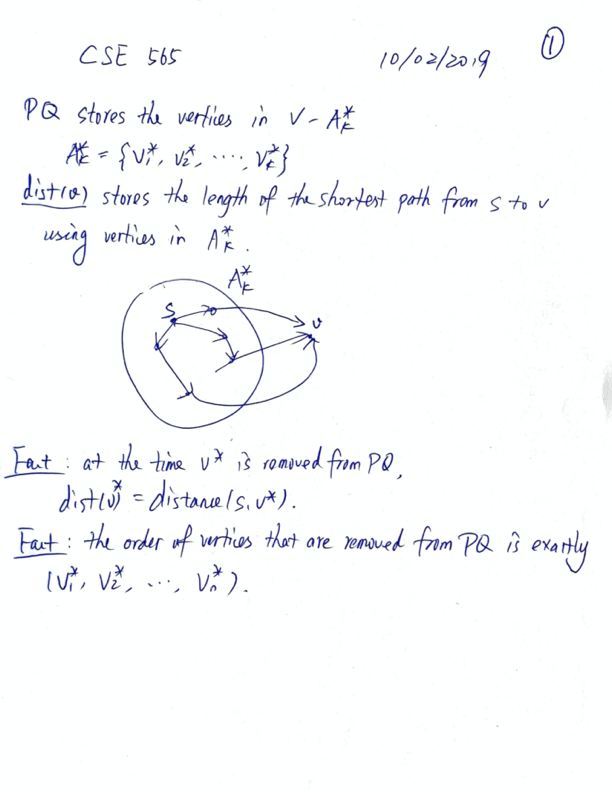 CSE 565 10/02/2019 ①
PQ stores the vertices in V - A*k
A*k = {v1*, v2*, ...., vk*}
dist(v) stores the length of the shortest path from s to v
using vertices in A*k.
A*k
s
v
Fact: at the time v* is removed from PQ,
dist(v*) = distance(s, v*).
Fact: the order of vertices that are removed from PQ is exactly
(v1*, v2*, ..., vn*).